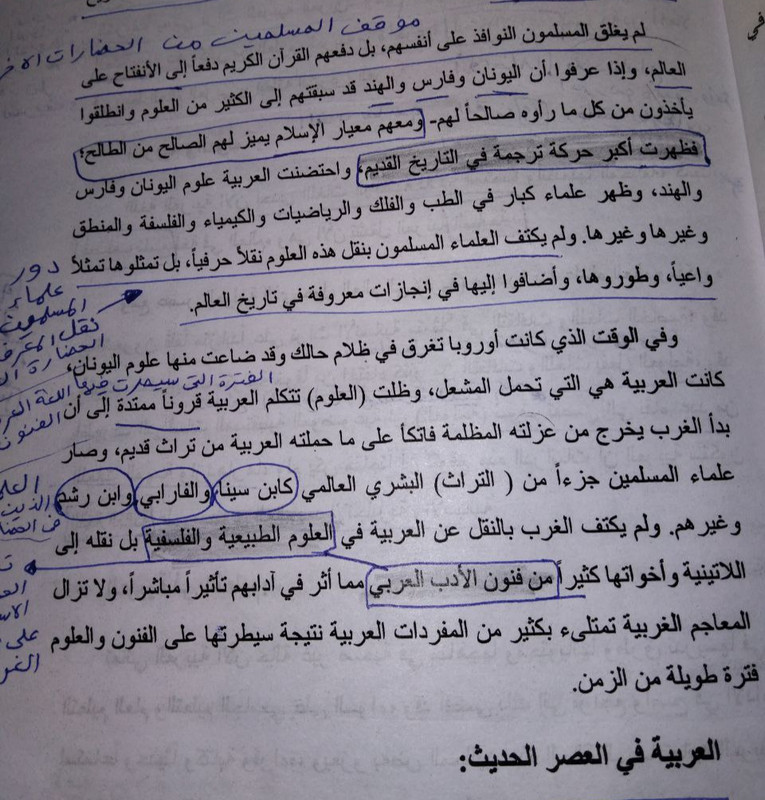 موقف المسلمين من الحضارات
لم يغلق المسلمون النوافذ على أنفسهم، بل دفعهم القرآن الكريم دفعاً إلى الأنفتاح على
العالم، وإذا عرفوا أن اليونان وفارس والهند قد سبقتهم إلى الكثير من العلوم وانطلقوا
يأخذون من كل ما رأوه صالحاً لهم- ومعهم معيار الإسلام يميز لهم الصالح من الطالح؛
فظهرت أكبر حركة ترجمة في التاريخ القديم، واحتضنت العربية علوم اليونان وفارس
والهند، وظهر علماء كبار في الطب والفلك والرياضيات والكيمياء والفلسفة والمنطق
وغيرها وغيرها. ولم يكتف العلماء المسلمون بنقل هذه العلوم نقلاً حرفياً، بل تمثلوها تمثلاً
واعياً، وطوروها، وأضافوا إليها في إنجازات معروفة في تاريخ العالم.
دور
علماء
المسلمون
نقل
الحضارة
وفي الوقت الذي كانت أوروبا تغرق في ظلام حالك وقد ضاعت منها علوم اليونان،
الفترة التي سيطرت فيها اللغة
كانت العربية هي التي تحمل المشعل، وظلت (العلوم) تتكلم العربية قروناً ممتدة إلى أن
بدأ الغرب يخرج من عزلته المظلمة فاتكأ على ما حملته العربية من تراث قديم، وصار
علماء المسلمين جزءاً من ( التراث) البشري العالمي كابن سينا والفارابي وابن رشد
وغيرهم. ولم يكتف الغرب بالنقل عن العربية في العلوم الطبيعية والفلسفية بل نقله إلى
اللاتينية وأخواتها كثيراً من فنون الأدب العربي مما أثر في آدابهم تأثيراً مباشراً، ولا تزال
المعاجم الغربية تمتلىء بكثير من المفردات العربية نتيجة سيطرتها على الفنون والعلوم
على
فترة طويلة من الزمن.
العربية في العصر الحديث:
في